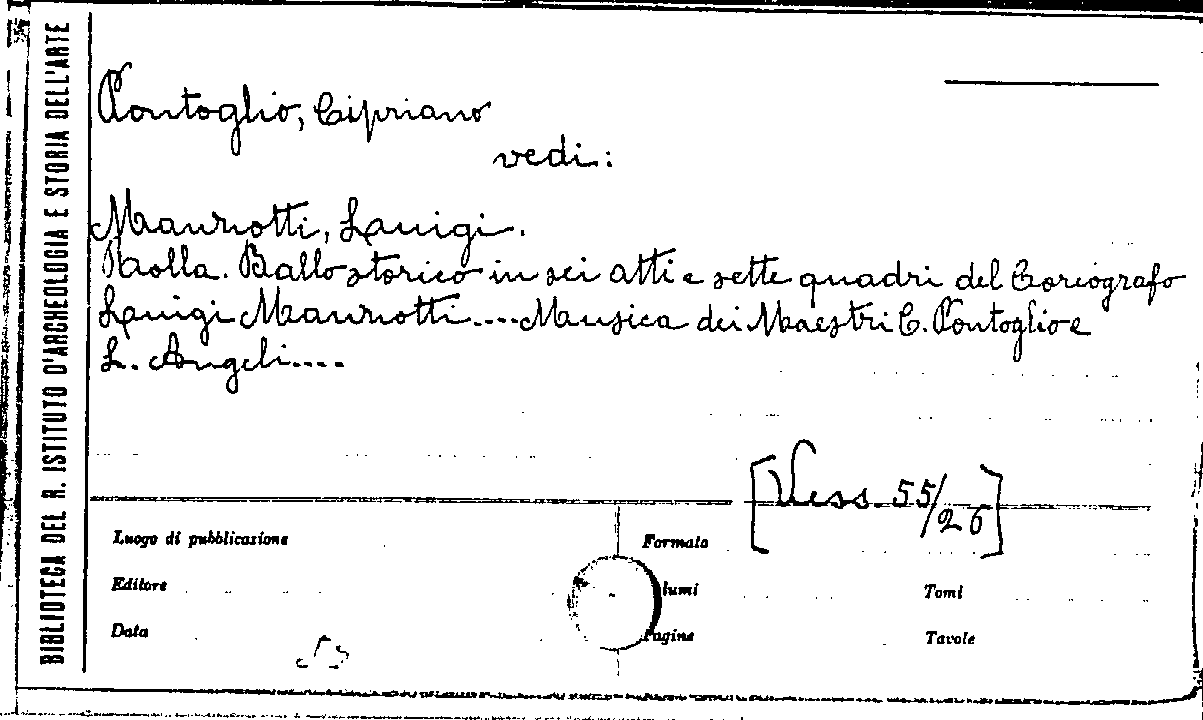 BIBLIOTECA DEL R. ISTITUTO D'ARCHEOLOGIA E STORIA DELL'ARTE
Pontoglio, Cipriano
vedi:
Manzotti, Luigi.
Rolla. Ballo storico in sei atti e sette quadri del Coreografo
Luigi Manzotti.... Musica dei Maestri C. Pontoglio e
L. Angeli....
[Vess. 55/26]
Luogo di pubblicazione Formato
Editore lumi Tomi
Data Pagine Tavole